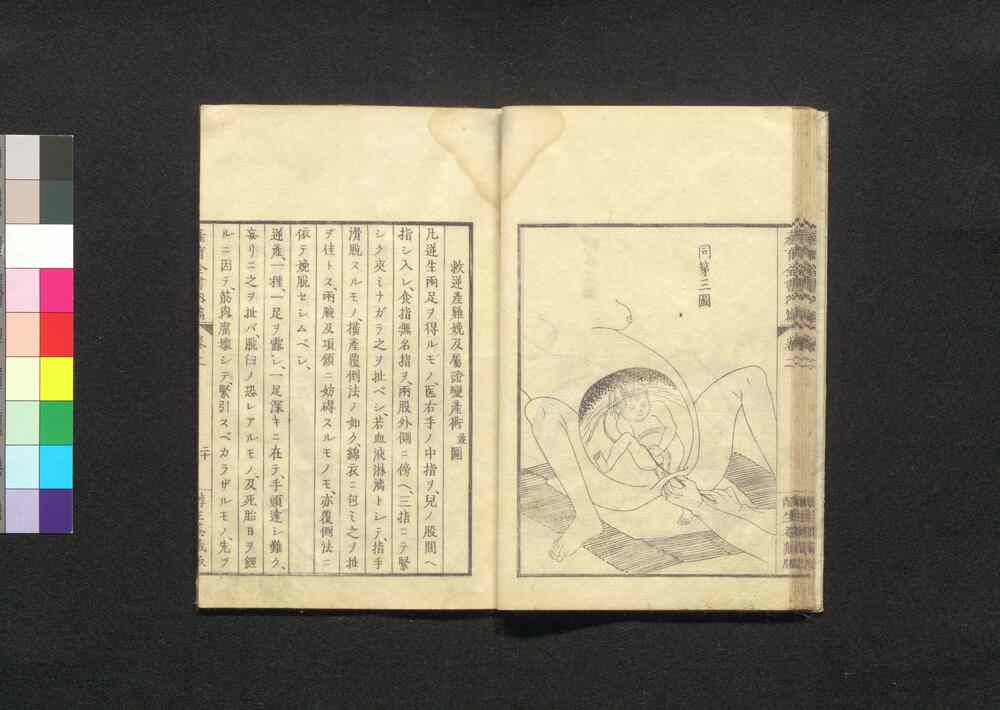 同第三圖
救逆產難娩及屬證變產術並圖
凡逆生兩足ヲ得ルモノ、医右手ノ中指ヲ、兒ノ股間ヘ
指シ入レ、食指無名指ヲ、兩股外側ニ傍ヘ、三指ニテ緊
シク夾ミナガラ之ヲ扯ベシ若血液淋漓トシテ、指手
滑脫スルモノ、橫產覆倒法ノ如ク、綿衣ニ包ミ之ヲ扯
ヲ佳トス、兩腋及項頷ニ妨碍スルモノモ、亦覆倒法ニ
依テ娩脫セシムベシ、
逆產、一種、一足ヲ露シ、一足深キニ在テ、手頭達シ難ク、
妄リニ之ヲ扯バ、脫臼ノ恐レアルモノ、及死胎日ヲ經
ルニ因テ、筋肉腐壞シテ、緊引スベカラザルモノ、先ヲ
二十